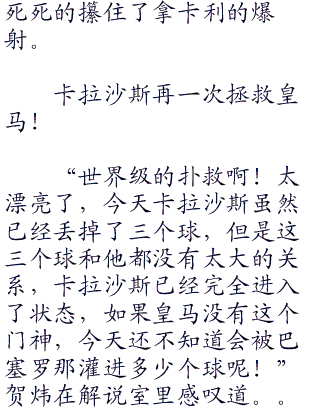 死死的攥住了拿卡利的爆
射。
卡拉沙斯再一次拯救皇
马！
“世界级的扑救啊！太
漂亮了，今天卡拉沙斯虽然
已经丢掉了三个球，但是这
三个球和他都没有太大的关
系，卡拉沙斯已经完全进入
了状态，如果皇马没有这个
门神，今天还不知道会被巴
塞罗那灌进多少个球呢！”
贺炜在解说室里感叹道。。